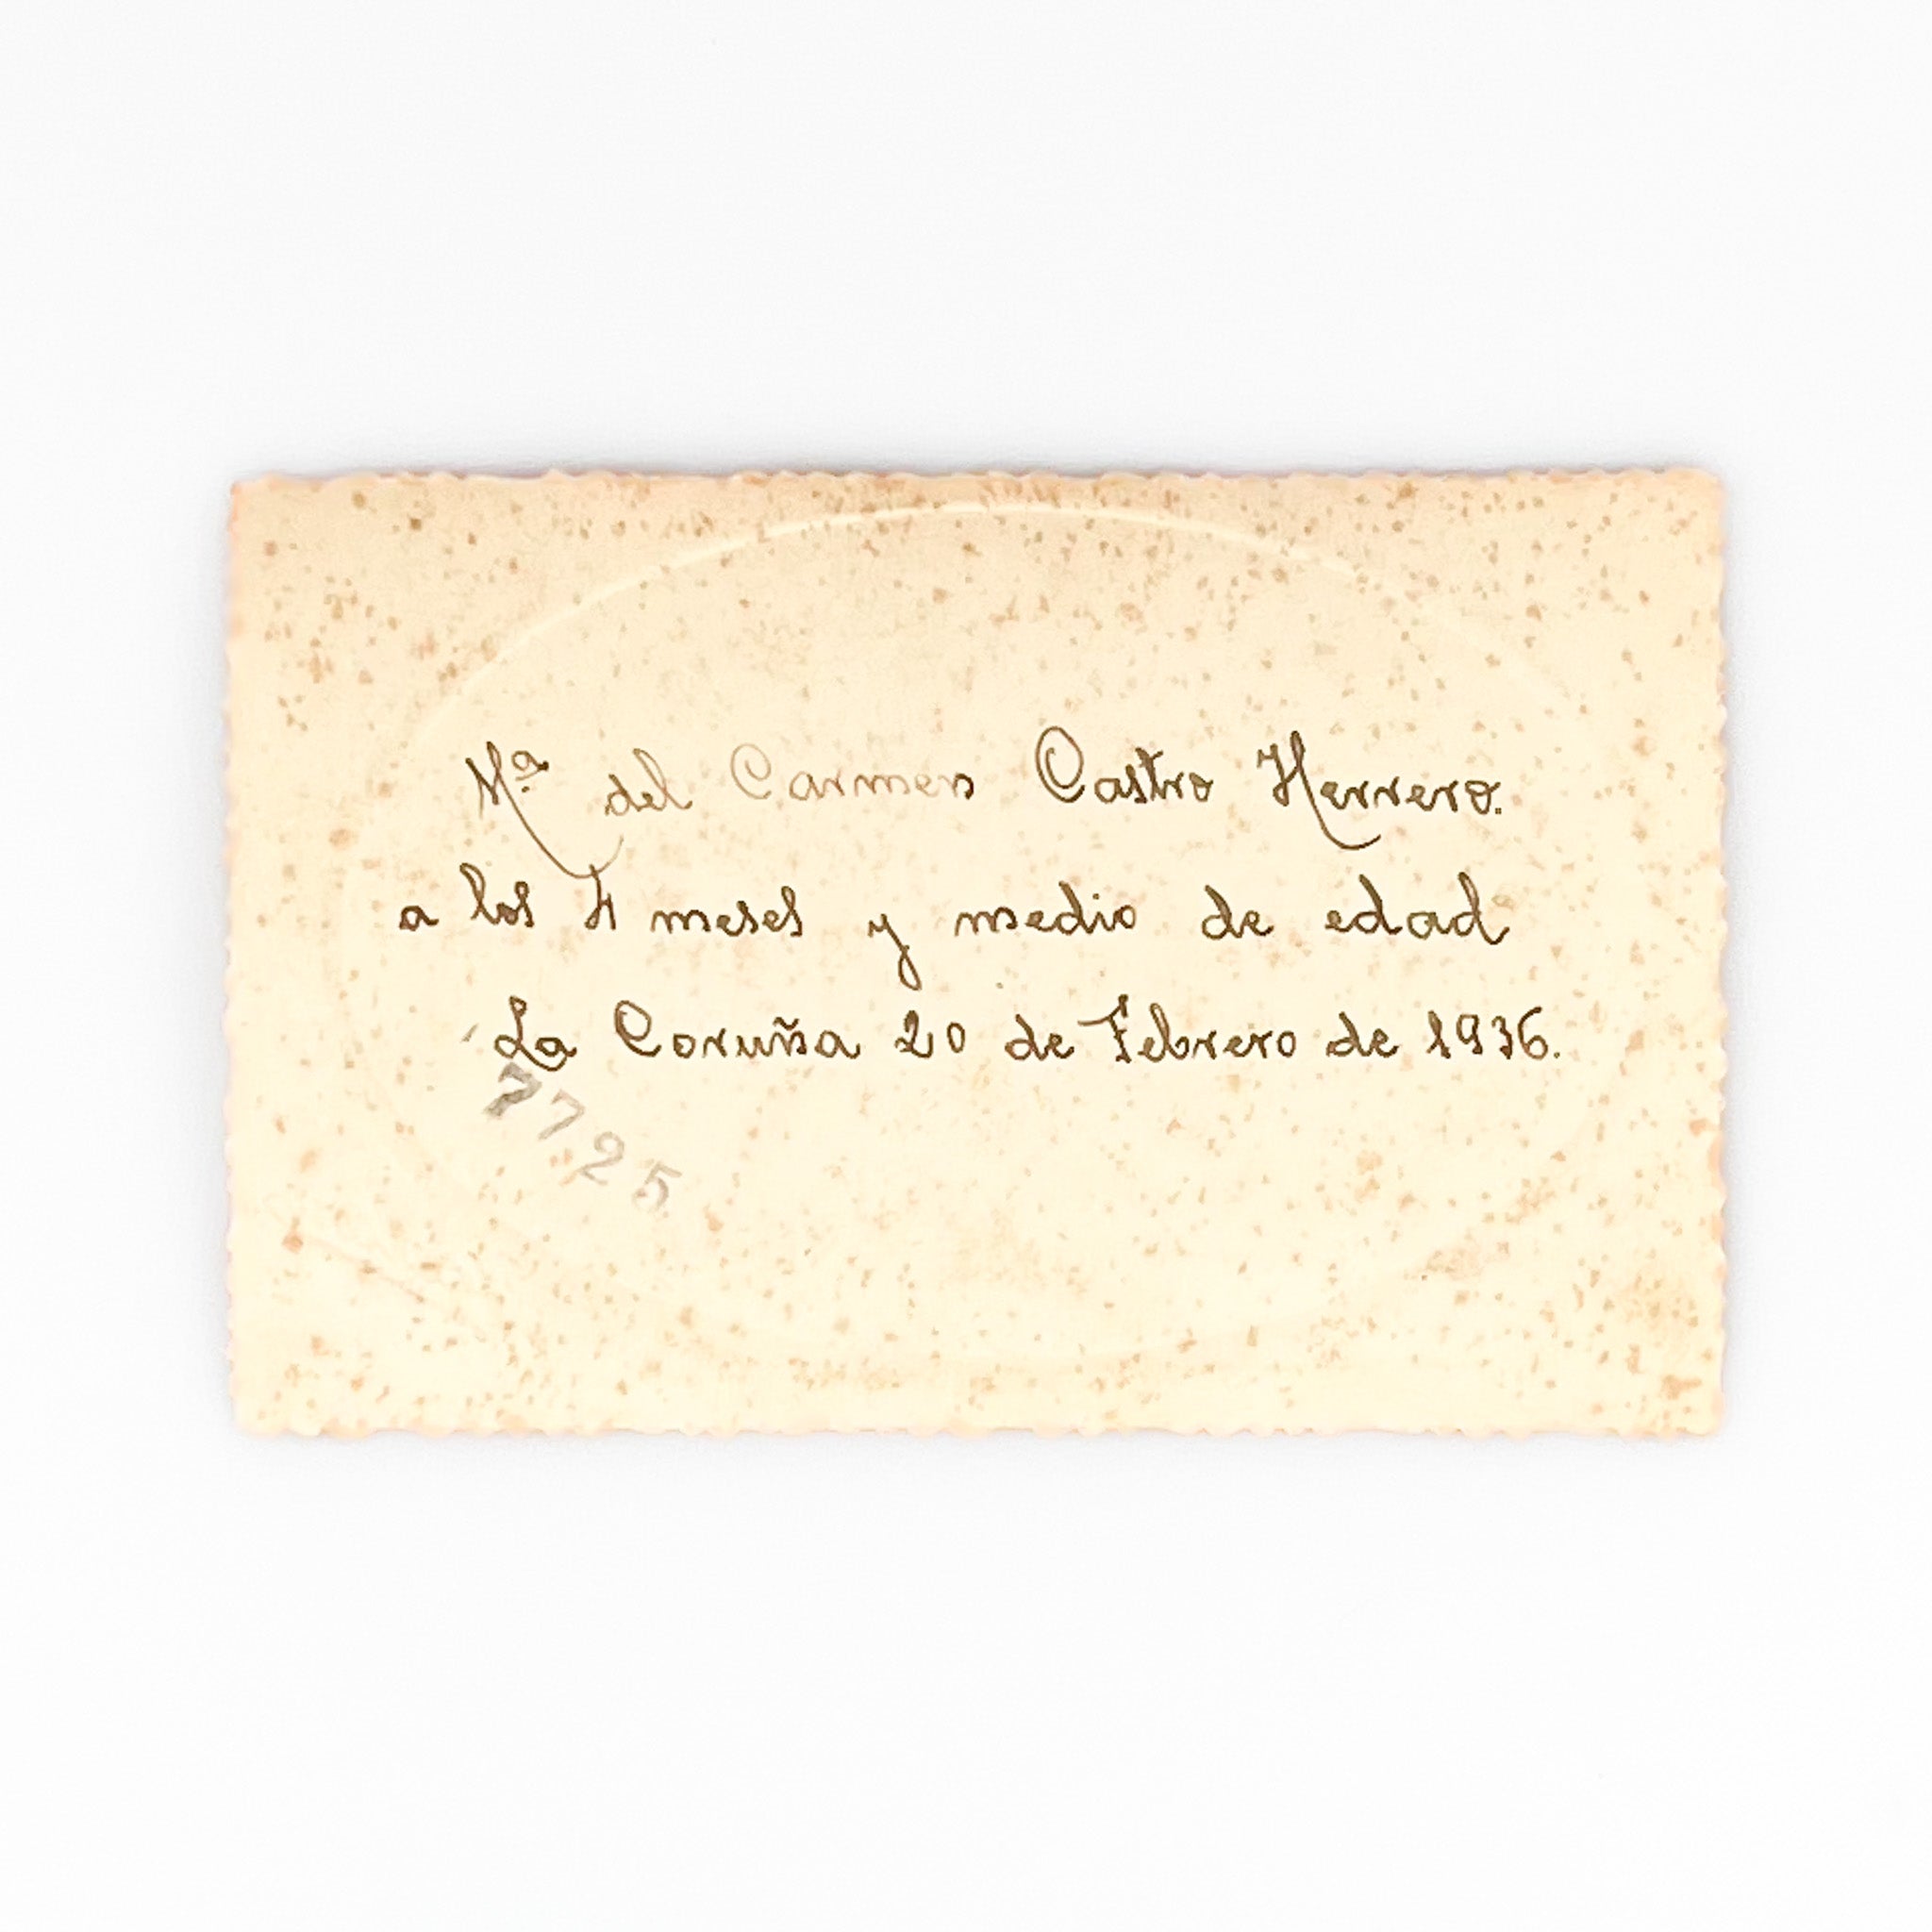 Mª del Carmen Castro Herrero.
a los 4 meses y medio de edad
La Coruña 20 de Febrero de 1936.
7725